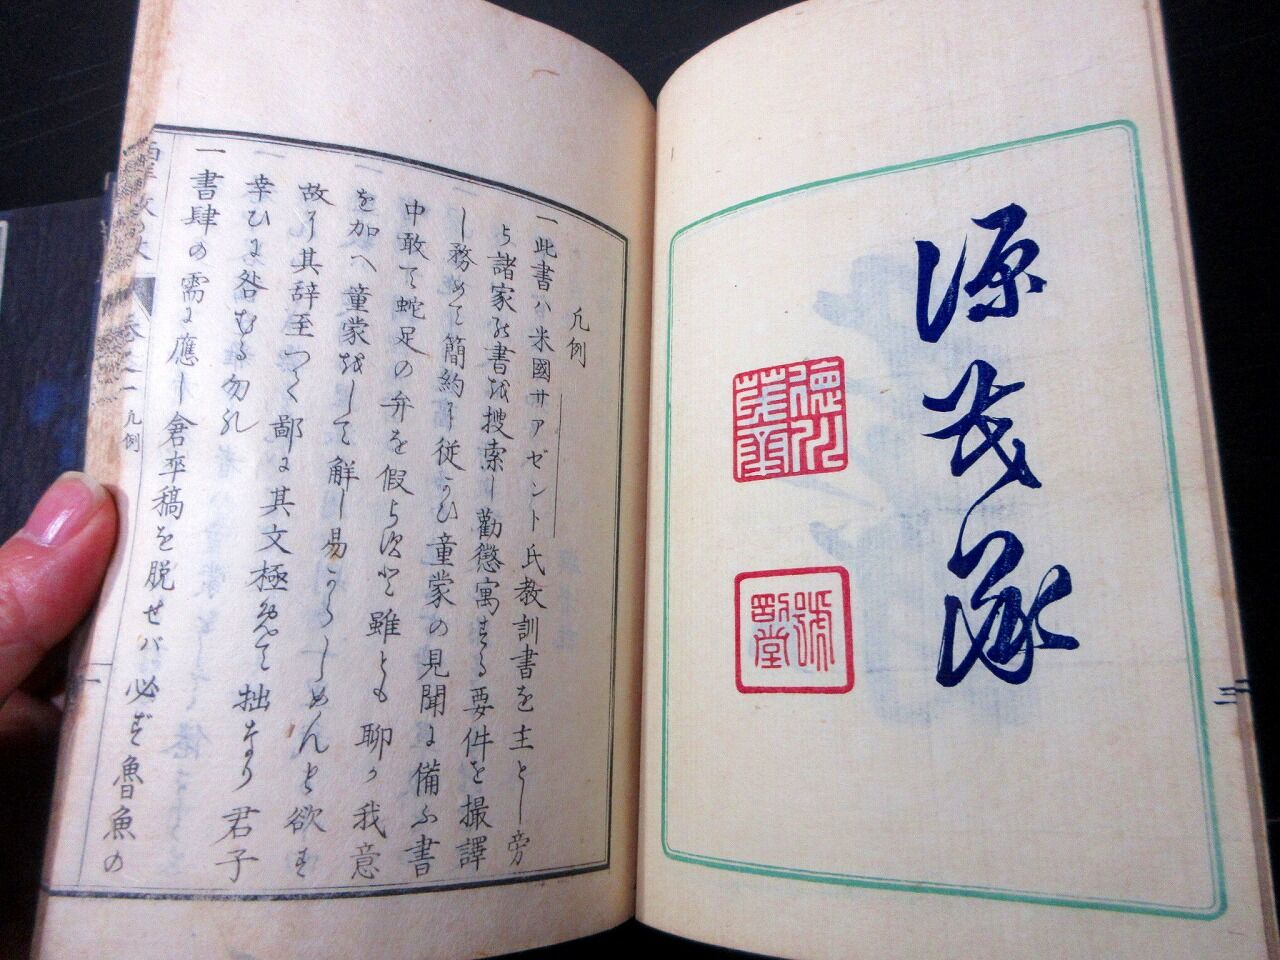 源茂承
凡例
一此書ハ米國サアゼント氏教訓書を主とし旁
ら諸家の書を搜索し勸懲寓する要件を撮譯
し務めて簡約に従ひ童蒙の見聞に備ふ書
中敢て蛇足の弁を假らずと雖とも聊か我意
を加へ童蒙をして解し易からしめんと欲す
故に其辞至つて鄙に其文極めて拙なり君子
幸ひに咎むる勿れ
一書肆の需に應し倉卒稿を脱せバ必ず魯魚の
巻之一 凡例
一